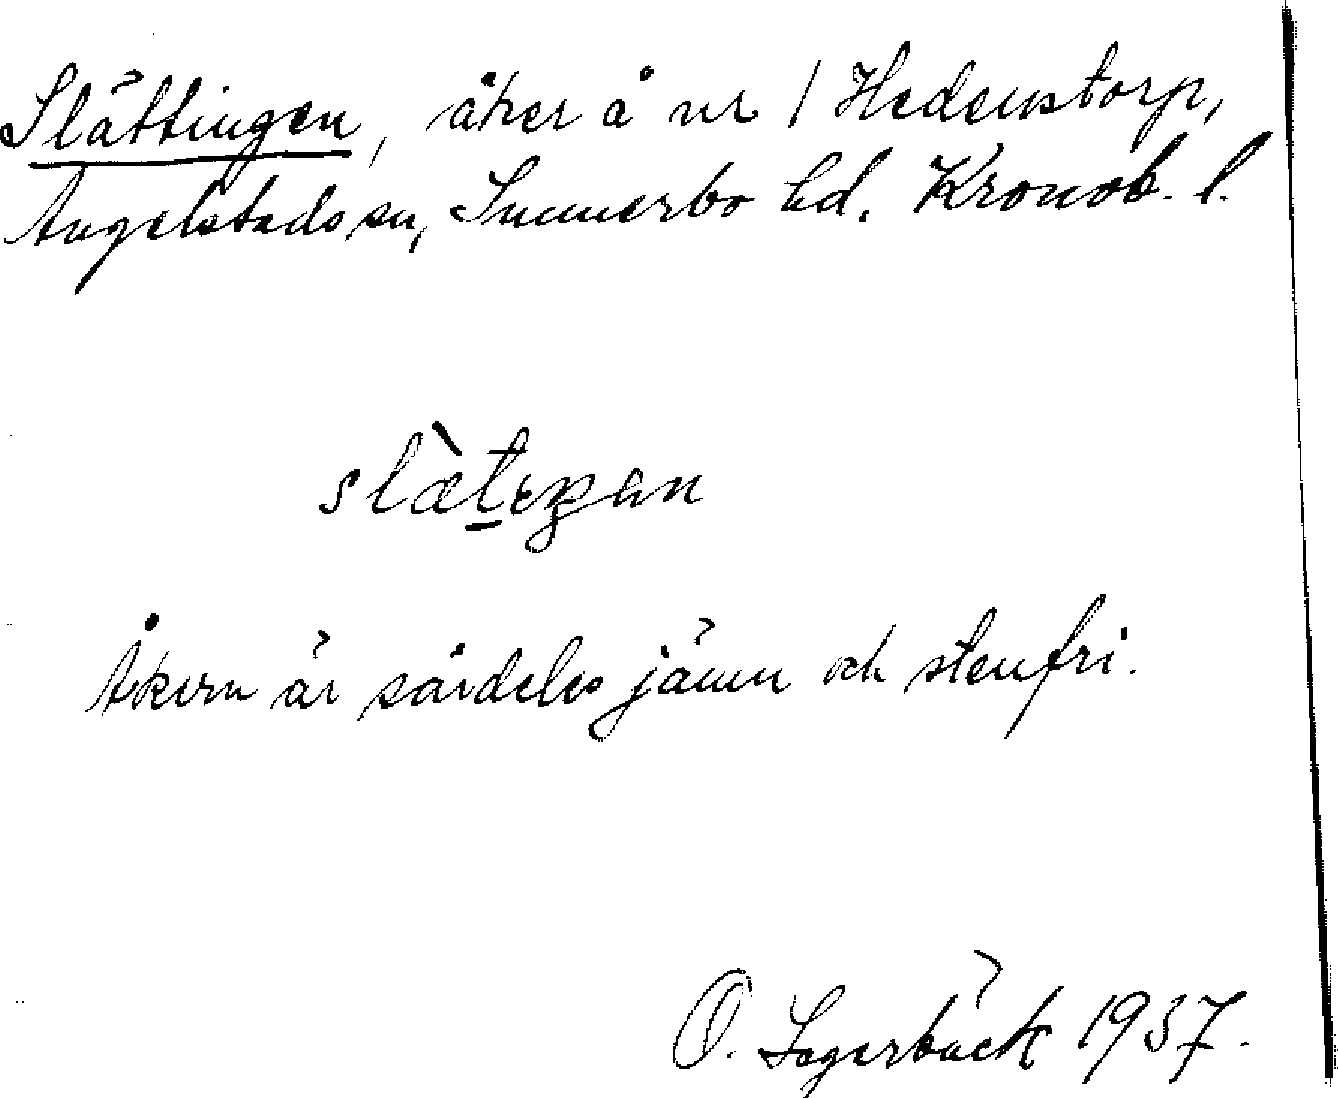 Slättingen, åker å nr 1 Hedenstorp,
Angelstads sn, Sunnerbo hd. Kronob. l.
slæ̀tıŋan
Åkern är särdeles jämn och stenfri.
O. Lagerbäck 1937.